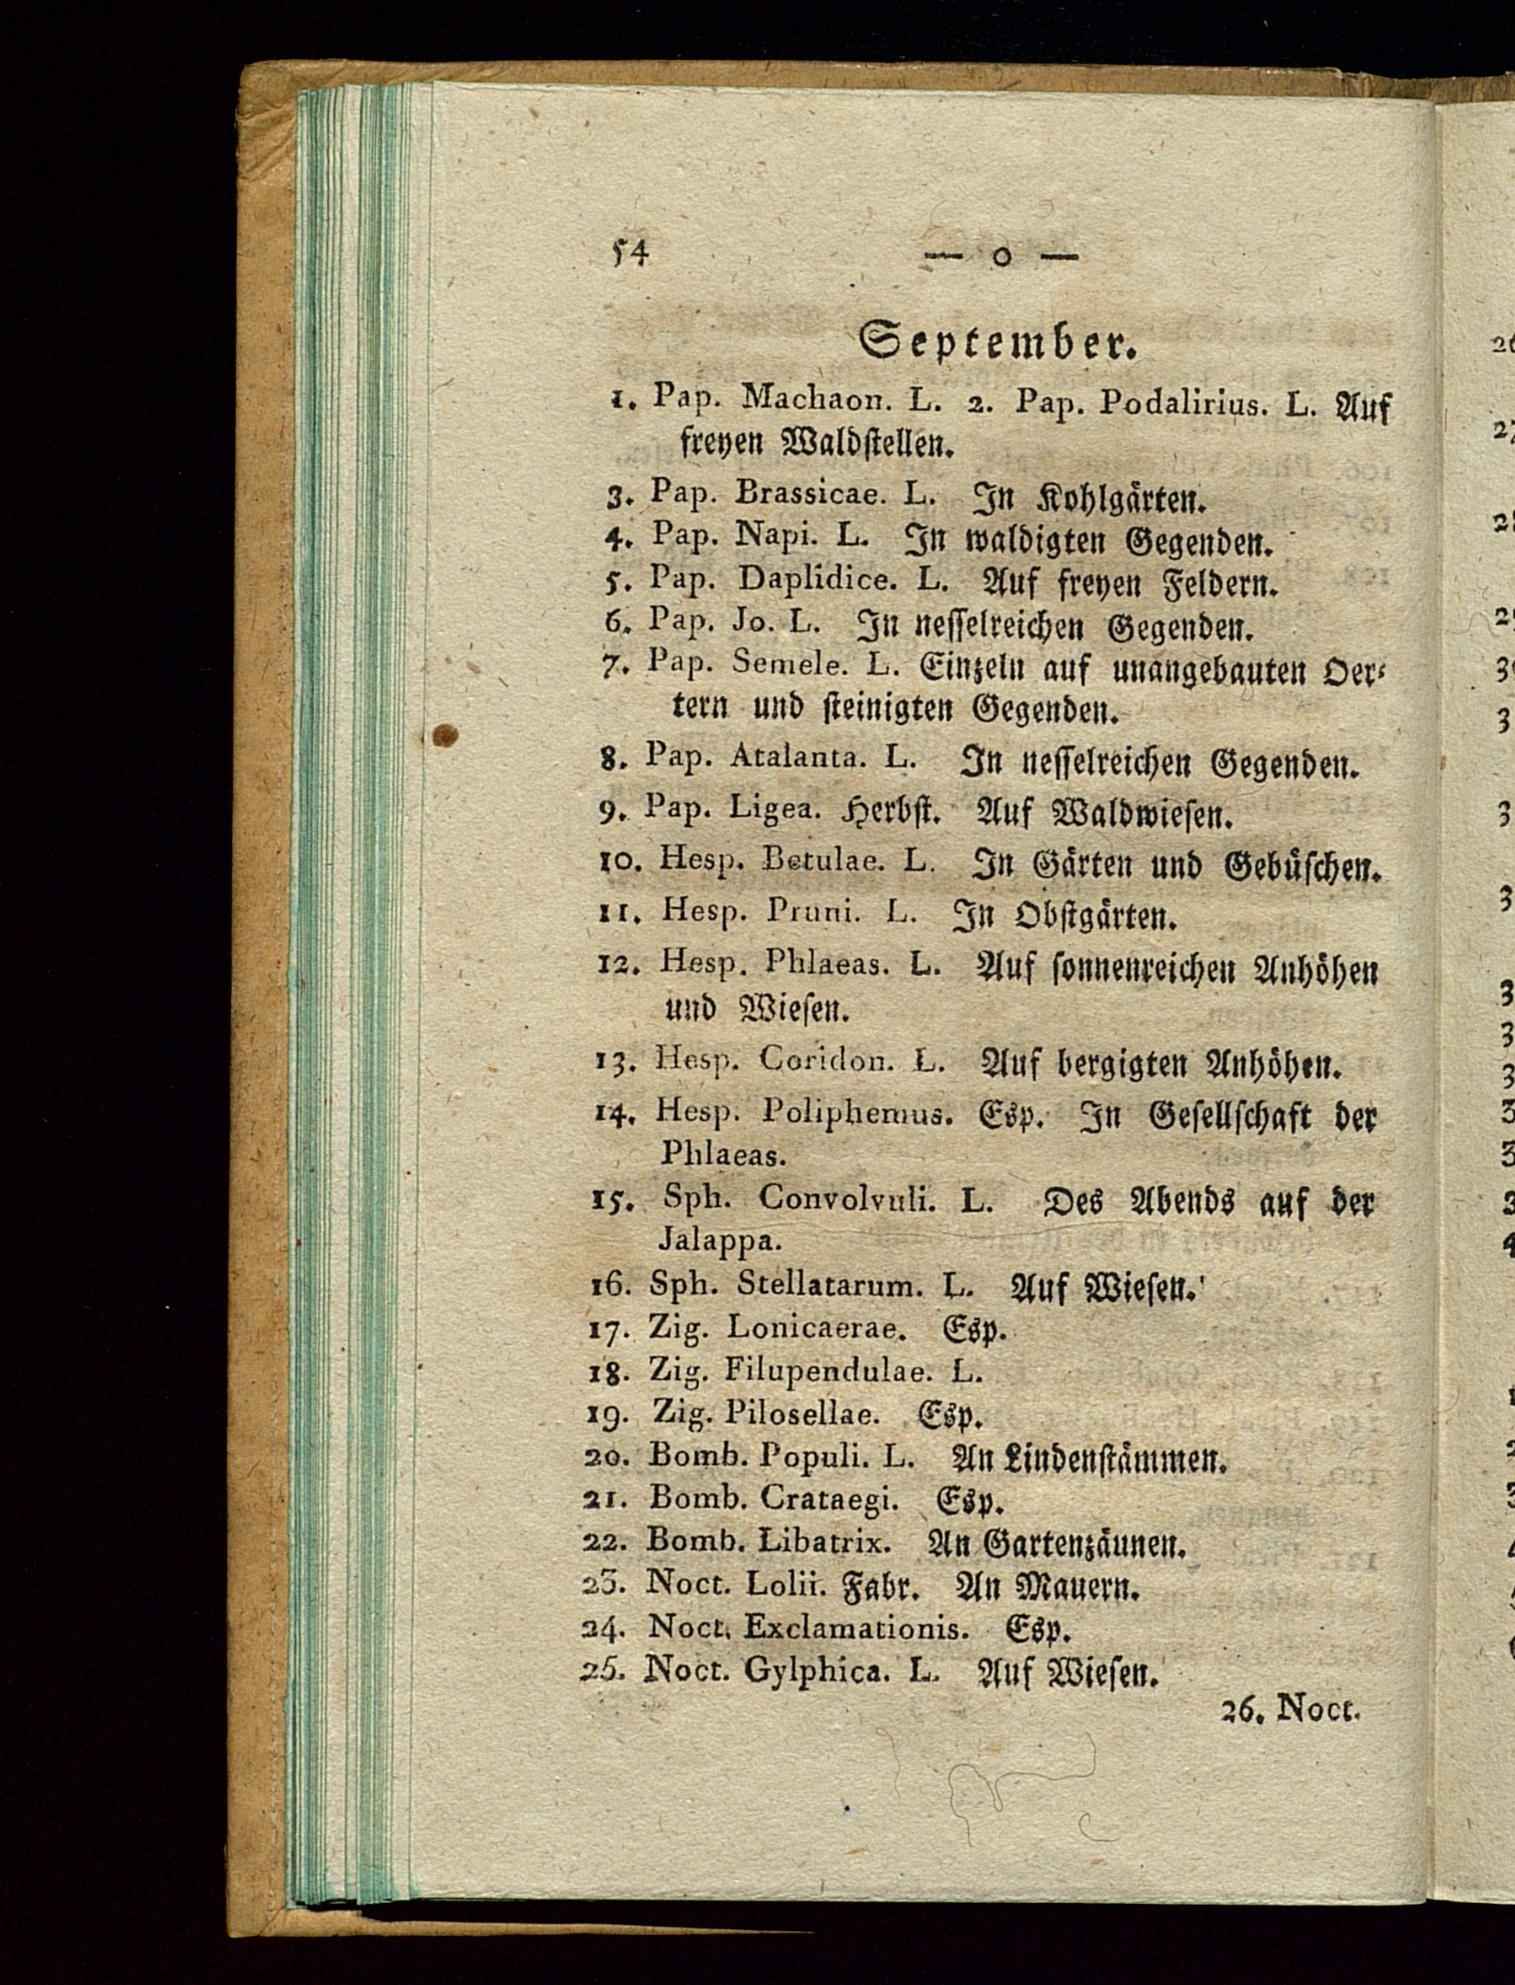 54 — o —
September.
1. Pap. Machaon. L. 2. Pap. Podalirius. L. Auf
freyen Waldſtellen.
3. Pap. Brassicae. L. In Kohlgärten.
4. Pap. Napi. L. In waldigten Gegenden.
5. Pap. Daplidice. L. Auf freyen Feldern.
6. Pap. Jo. L. In neſſelreichen Gegenden.
7. Pap. Semele. L. Einzeln auf unangebauten Oer⸗
tern und ſteinigten Gegenden.
8. Pap. Atalanta. L. In neſſelreichen Gegenden.
9. Pap. Ligea. Herbſt. Auf Waldwieſen.
10. Hesp. Betulae. L. In Gärten und Gebüſchen.
11. Hesp. Pruni. L. In Obſtgärten.
12. Hesp. Phlaeas. L. Auf ſonnenreichen Anhöhen
und Wieſen.
13. Hesp. Coridon. L. Auf bergigten Anhöhen.
14. Hesp. Poliphemus. Esp. In Geſellſchaft der
Phlaeas.
15. Sph. Convolvuli. L. Des Abends auf der
Jalappa.
16. Sph. Stellatarum. L. Auf Wieſen.
17. Zig. Lonicaerae. Esp.
18. Zig. Filupendulae. L.
19. Zig. Pilosellae. Esp.
20. Bomb. Populi. L. An Lindenſtämmen.
21. Bomb. Crataegi. Esp.
22. Bomb. Libatrix. An Gartenzäunen.
23. Noct. Lolii. Fabr. An Mauern.
24. Noct. Exclamationis. Esp.
25. Noct. Gylphica. L. Auf Wieſen.
26. Noct.